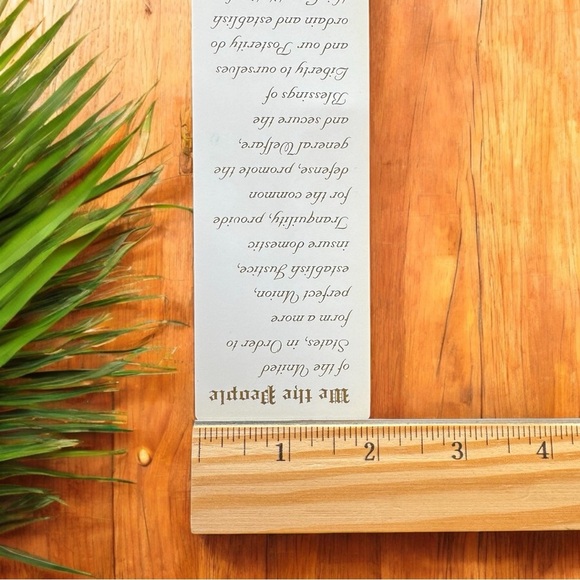 We the People
of the United
States, in Order to
form a more
perfect Union,
establish Justice,
insure domestic
Tranquility, provide
for the common
defense, promote the
general Welfare,
and secure the
Blessings of
Liberty to ourselves
and our Posterity do
ordain and establish
1 2 3 4